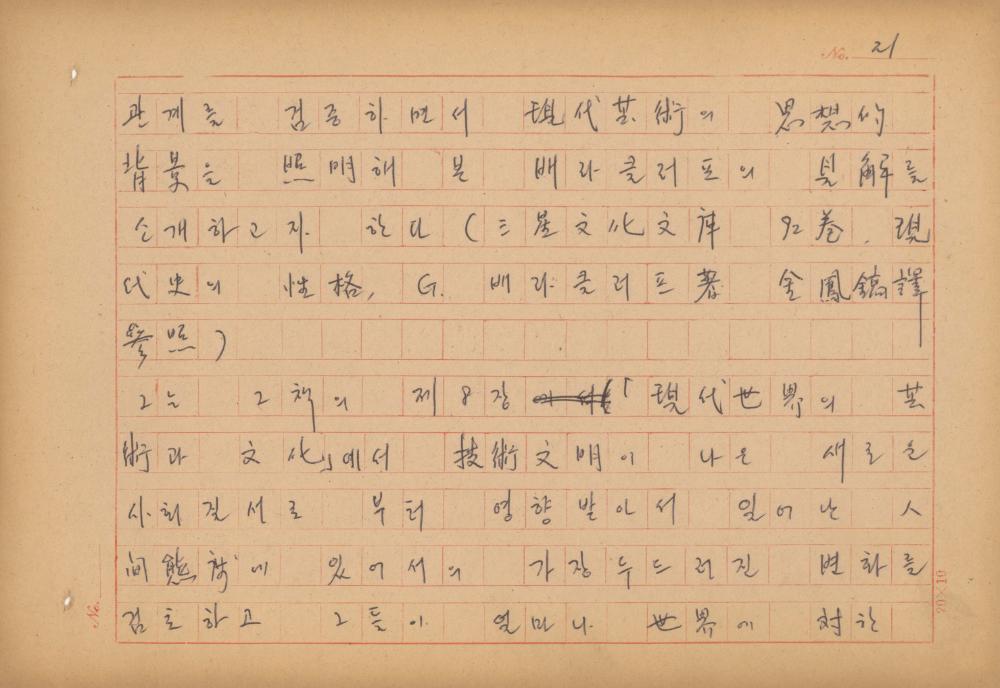 No. 21
관계를 검증하면서 現代芸術의 思想的
背景을 照明해 본 배라클러프의 見解를
소개하고자 한다 (三星文化文庫 92卷, 現
代史의 性格, G. 배라클러프著 金鳳鎬譯
參照)
그는 그 책의 제8장 「現代世界의 芸
術과 文化」에서 技術文明이 나은 새로운
사회질서로 부터 영향받아서 일어난 人
間態度에 있어서의 가장 두드러진 변화를
검토하고 그들이 얼마나 世界에 対한
No.
20×10